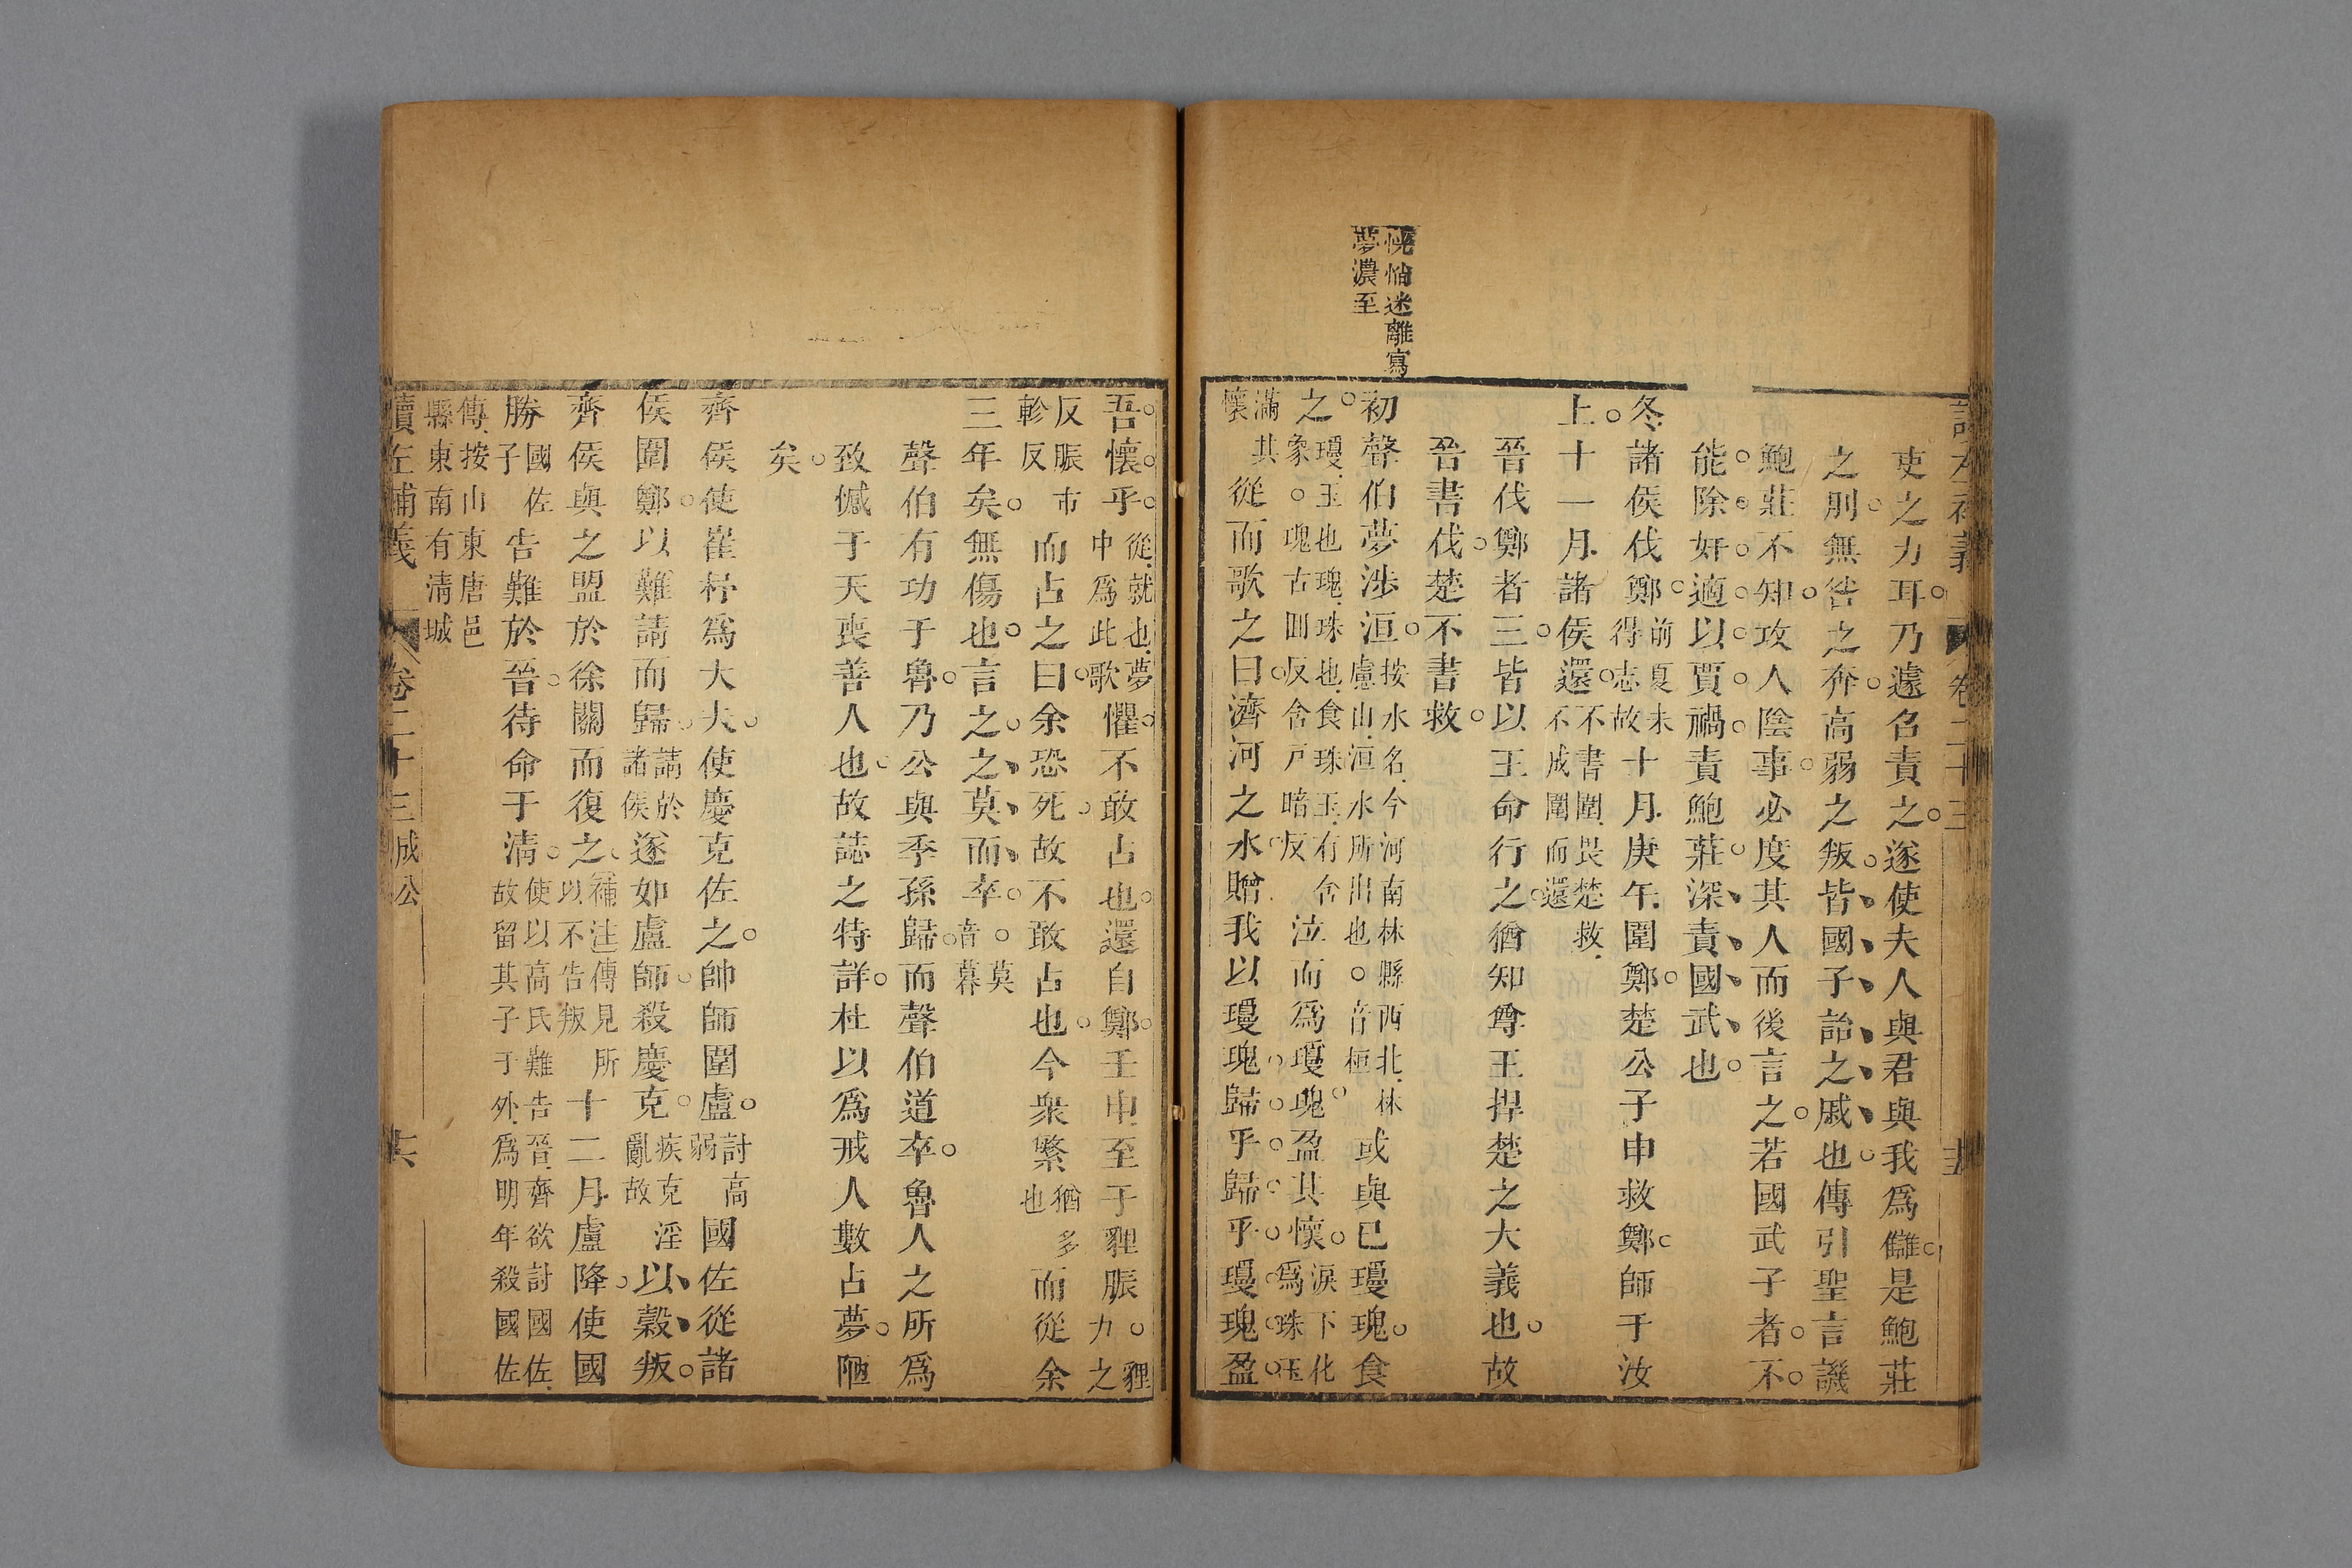 讀左補義 卷二十三 十五
吏之力耳乃遽名責之遂使夫人與君與我爲讎是鮑莊
之刖無咎之奔高弱之叛皆國子詒之戚也傳引聖言譏
鮑莊不知攻人陰事必度其人而後言之若國武子者不
能除奸適以賈禍責鮑莊深責國武也
冬諸侯伐鄭前夏未得志故十月庚午圍鄭楚公子申救鄭師于汝
上十一月諸侯還不書圍畏楚救不成圍而還
晉伐鄭者三皆以王命行之猶知尊王捍楚之大義也故
晉書伐楚不書救
恍惚迷離寫
夢濃至
初聲伯夢涉洹按水名今河南林縣西北林慮山洹水所出也○音桓或與己瓊瑰食
之瓊玉也瑰珠也食珠玉有含象○瑰古回反含戶暗反泣而爲瓊瑰盈其懷淚下化爲珠玉
滿其懷從而歌之曰濟河之水贈我以瓊瑰歸乎歸乎瓊瑰盈
吾懷乎從就也夢中爲此歌懼不敢占也還自鄭壬申至于貍脤○貍力之
反脤市軫反而占之曰余恐死故不敢占也今衆繁猶多也而從余
三年矣無傷也言之之莫而卒○莫音暮
聲伯有功于魯乃公與季孫歸而聲伯道卒魯人之所爲
致憾于天喪善人也故誌之特詳杜以爲戒人數占夢陋
矣
齊侯使崔杼爲大夫使慶克佐之帥師圍盧討高弱國佐從諸
侯圍鄭以難請而歸請於諸侯遂如盧師殺慶克疾克淫亂故以穀叛
齊侯與之盟於徐關而復之補注傳見所以不告叛十二月盧降使國
勝國佐子告難於晉待命于清使以高氏難告晉齊欲討國佐故留其子于外爲明年殺國佐
傳按山東唐邑縣東南有清城
讀左補義 卷二十三成公 十六